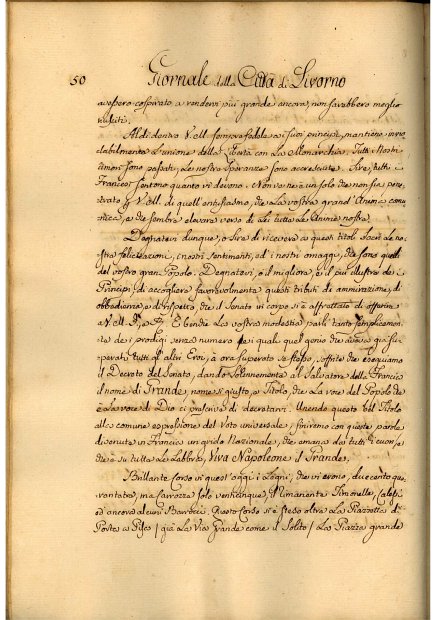 50 Giornale della Città di Livorno
avessero cospirato a rendervi più grande ancora, non sarebbero meglio
riusciti.
Al di dentro V. M. sempre fedele a' suoi principj, mantiene invio-
labilmente l'unione della Libertà con La Monarchia. Tutti i Nostri
timori sono passati, Le nostre speranze sono accresciute. Sire, tutti i
Francesi sentono quanto vi devono. Non ve ne è un solo che non sia pene-
trato p. V. M. di quell'entusiasmo, che La vostra grand'Anima comu-
nica, e che sembra elevare verso di Lei tutte Le Anime nostre.
Degnatevi dunque, o Sire di ricevere a questi titoli Sacri Le no-
stre felicitazioni, i nostri sentimenti, ed i nostri omaggi, che sono quelli
del vostro gran Popolo. Degnatevi, o il migliore, e il più illustre de i
Principi di accogliere favorevolmente questi tributi di ammirazione, di
obbedienza, e di rispetto, che il Senato in corpo si è affrettato di offerire
a V. M. I. e R. E benchè La vostra modestia parli tanto semplicemen-
te de i prodigj senza numero pei quali quel genio che aveva già su-
perati tutti gl'altri Eroi, à ora superato se stesso, soffrite che eseguiamo
il Decreto del Senato, dando Solennemente al Salvatore della Francia
il nome di Grande, nome sì giusto, e Titolo, che La voce del Popolo che
è La voce di Dio ci prescrive di decretarvi. Unendo questo bel Titolo
alla comune espressione del Voto universale, finiremo con queste parole
divenute in Francia un grido Nazionale, che emana da tutti i cuori, e
che è su tutte Le Labbra, Viva Napoleone il Grande.
Brillante Corso in quest'oggi i Legni, che vi erono, ducento qua-
rontatre, ma Carrozze solo venticinque, il rimanente Timonelle, Calessi
ed ancora alcuni Barrocci. Questo Corso si è steso oltre La Piazzetta di
Porta a Pisa / già La Via Grande come il Solito / La Piazza grande